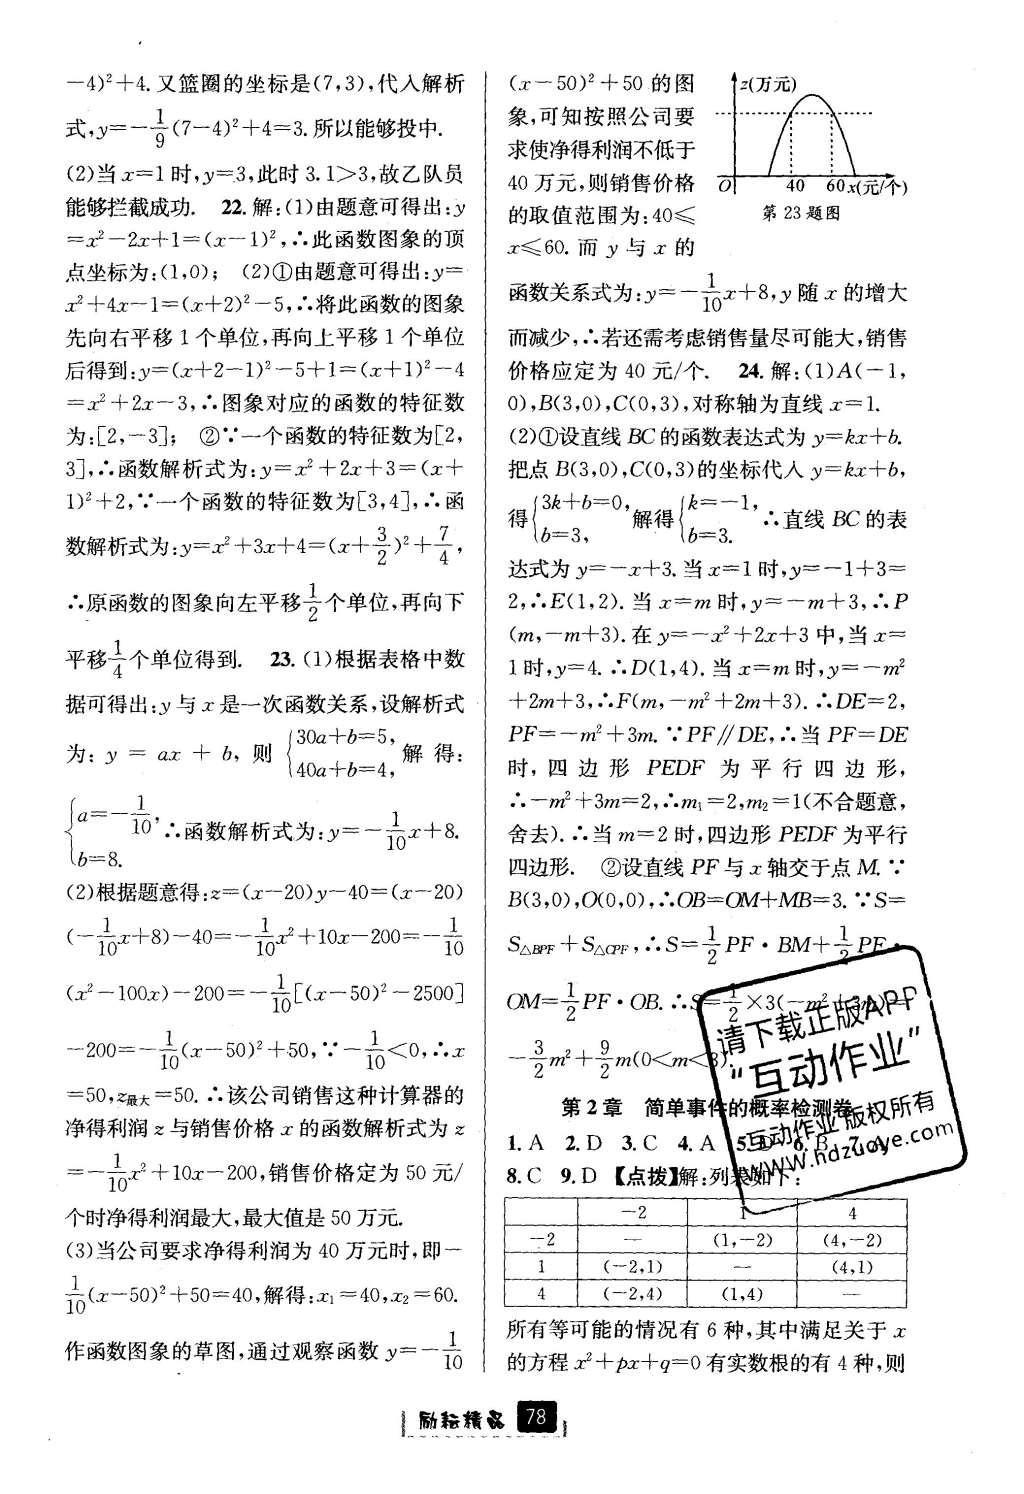 －4)²＋4. 又篮圈的坐标是(7,3),代入解析
式,y=－1/9(7－4)²＋4=3. 所以能够投中.
(2)当 x=1 时,y=3,此时 3.1>3,故乙队员
能够拦截成功. 22. 解:(1)由题意可得出:y
=x²－2x＋1=(x－1)²,∴此函数图象的顶
点坐标为:(1,0); (2)①由题意可得出:y=
x²＋4x－1=(x＋2)²－5,∴将此函数的图象
先向右平移 1 个单位,再向上平移 1 个单位
后得到:y=(x＋2－1)²－5＋1=(x＋1)²－4
=x²＋2x－3,∴图象对应的函数的特征数
为:[2,－3]; ②∵一个函数的特征数为[2,
3],∴函数解析式为:y=x²＋2x＋3=(x＋
1)²＋2,∵一个函数的特征数为[3,4],∴函
数解析式为:y=x²＋3x＋4=(x＋3/2)²＋7/4,
∴原函数的图象向左平移1/2个单位,再向下
平移1/4个单位得到. 23. (1)根据表格中数
据可得出:y 与 x 是一次函数关系,设解析式
为: y = ax + b, 则 {30a＋b=5, 40a＋b=4, 解得:
{a=－1/10, b=8. ∴函数解析式为:y=－1/10x＋8.
(2)根据题意得:z=(x－20)y－40=(x－20)
(－1/10x＋8)－40=－1/10x²＋10x－200=－1/10
(x²－100x)－200=－1/10[(x－50)²－2500]
－200=－1/10(x－50)²＋50,∵－1/10<0,∴x
=50,z最大=50. ∴该公司销售这种计算器的
净得利润 z 与销售价格 x 的函数解析式为 z
=－1/10x²＋10x－200,销售价格定为 50 元/
个时净得利润最大,最大值是 50 万元.
(3)当公司要求净得利润为 40 万元时,即－
1/10(x－50)²＋50=40,解得:x₁=40,x₂=60.
作函数图象的草图,通过观察函数 y=－1/10
(x－50)²＋50 的图
象,可知按照公司要
求使净得利润不低于
40 万元,则销售价格
的取值范围为:40≤
x≤60. 而 y 与 x 的
z(万元)
O 40 60 x(元/个)
第 23 题图
函数关系式为:y=－1/10x＋8,y 随 x 的增大
而减少,∴若还需考虑销售量尽可能大,销售
价格应定为 40 元/个. 24. 解:(1)A(－1,
0),B(3,0),C(0,3),对称轴为直线 x=1.
(2)①设直线 BC 的函数表达式为 y=kx＋b.
把点 B(3,0),C(0,3)的坐标代入 y=kx＋b,
得{3k＋b=0, b=3, 解得{k=－1, b=3. ∴直线 BC 的表
达式为 y=－x＋3. 当 x=1 时,y=－1＋3=
2,∴E(1,2). 当 x=m 时,y=－m＋3,∴P
(m,－m＋3). 在 y=－x²＋2x＋3 中,当 x=
1 时,y=4. ∴D(1,4). 当 x=m 时,y=－m²
＋2m＋3,∴F(m,－m²＋2m＋3). ∴DE=2,
PF=－m²＋3m. ∵PF∥DE,∴当 PF=DE
时, 四 边 形 PEDF 为 平 行 四 边 形,
∴－m²＋3m=2,∴m₁=2,m₂=1(不合题意,
舍去). ∴当 m=2 时,四边形 PEDF 为平行
四边形. ②设直线 PF 与 x 轴交于点 M. ∵
B(3,0),O(0,0),∴OB=OM＋MB=3. ∵S=
S△BPF＋S△CPF,∴S=1/2PF·BM＋1/2PF·
OM=1/2PF·OB. ∴S=1/2×3(－m²＋3m)=
－3/2m²＋9/2m(0<m<3).
第 2 章 简单事件的概率检测卷
1. A 2. D 3. C 4. A 5. D 6. B 7. A
8. C 9. D 【点拨】解:列表如下:
－2 1 4
－2 — (1,－2) (4,－2)
1 (－2,1) — (4,1)
4 (－2,4) (1,4) —
所有等可能的情况有 6 种,其中满足关于 x
的方程 x²＋px＋q=0 有实数根的有 4 种,则
请下载正版APP
“互动作业”
互动作业 版权所有
www.hdzuoye.com
励耘精品 78